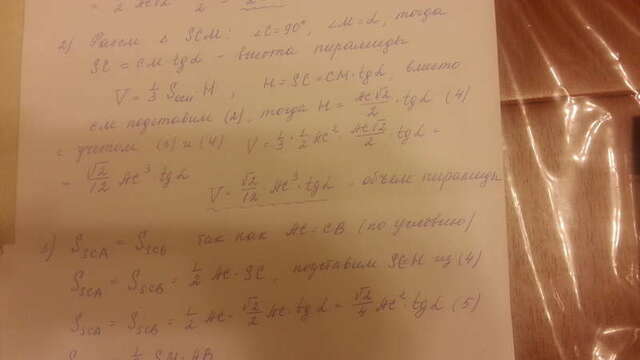 2) Рассм. Δ SCM: ∠C=90°, ∠M=α, тогда
SC = CM·tgα - высота пирамиды
V = 1/3 · Sосн · H, H = SC = CM·tgα, вместо
см подставим (2), тогда H = AC√2/2 · tgα (4)
с учетом (3) и (4) V = 1/3 · 1/2 AC² · AC√2/2 · tgα =
= √2/12 AC³ · tgα
V = √2/12 AC³ · tgα - объем пирамиды
3) S_SCA = S_SCB так как AC = CB (по условию)
S_SCA = S_SCB = 1/2 AC · SC, подставим из (4)
S_SCA = S_SCB = 1/2 AC · √2/2 AC · tgα = √2/4 AC² · tgα (5)
SM · AB